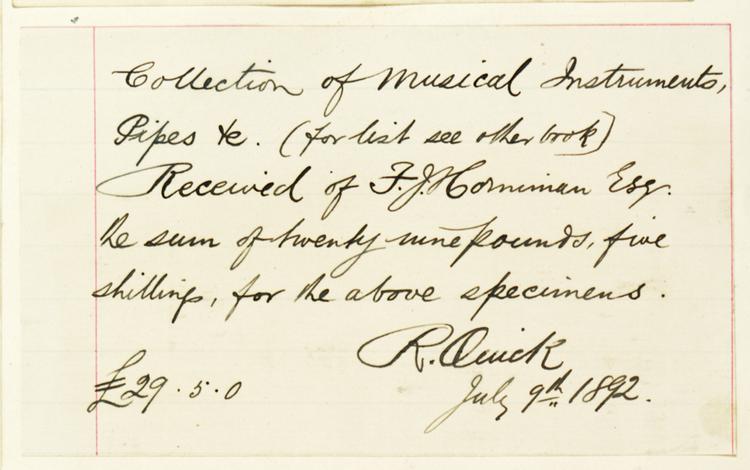 Collection of Musical Instruments,
Pipes &c. (for list see other book)
Received of F.J. Horniman Esq.
the sum of twenty nine pounds, five
shillings, for the above specimens.
R. Quick
£29.5.0
July 9th 1892.